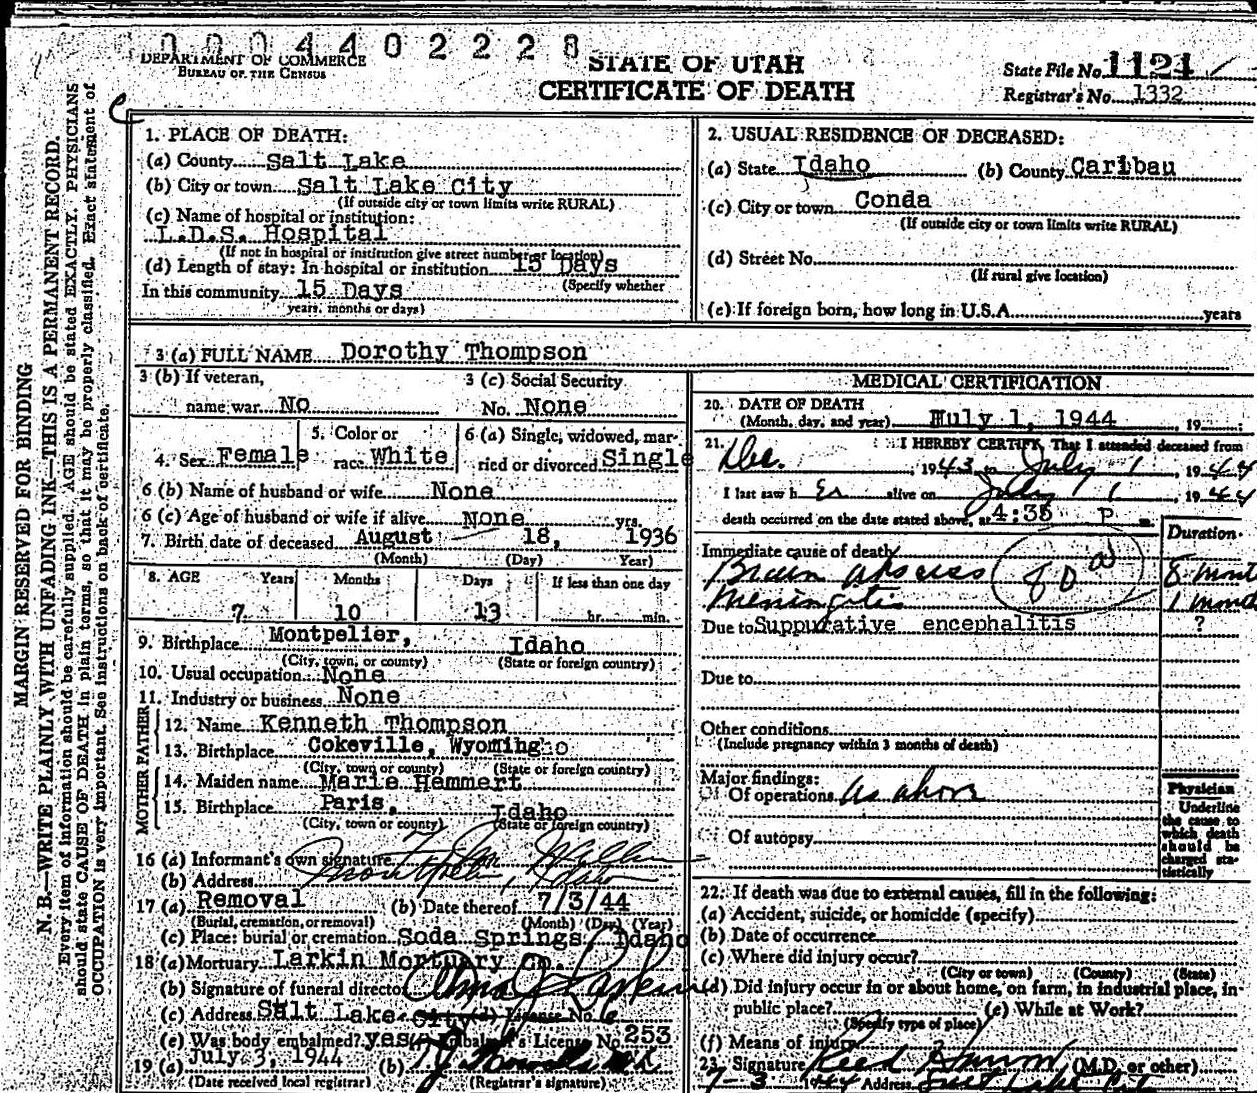 0 0 0 4 4 0 2 2 2 8
DEPARTMENT OF COMMERCE
BUREAU OF THE CENSUS
STATE OF UTAH
CERTIFICATE OF DEATH
State File No. 1121
Registrar's No. 1332
MARGIN RESERVED FOR BINDING
N. B.—WRITE PLAINLY WITH UNFADING INK—THIS IS A PERMANENT RECORD.
Every item of information should be carefully supplied. AGE should be stated EXACTLY. PHYSICIANS
should state CAUSE OF DEATH in plain terms, so that it may be properly classified. Exact statement of
OCCUPATION is very important. See instructions on back of certificate.
1. PLACE OF DEATH:
(a) County Salt Lake
(b) City or town Salt Lake City
(If outside city or town limits write RURAL)
(c) Name of hospital or institution:
L.D.S. Hospital
(If not in hospital or institution give street number or location)
(d) Length of stay: In hospital or institution 15 Days
(Specify whether
In this community 15 Days
years, months or days)
2. USUAL RESIDENCE OF DECEASED:
(a) State Idaho (b) County Caribau
(c) City or town Conda
(If outside city or town limits write RURAL)
(d) Street No.
(If rural give location)
(e) If foreign born, how long in U.S.A. years
3 (a) FULL NAME Dorothy Thompson
3 (b) If veteran,
name war No
3 (c) Social Security
No. None
4. Sex Female
5. Color or
race White
6 (a) Single, widowed, mar-
ried or divorced Single
6 (b) Name of husband or wife None
6 (c) Age of husband or wife if alive None yrs.
7. Birth date of deceased August 18, 1936
(Month) (Day) Year)
8. AGE Years Months Days If less than one day
7 10 13 hr. min.
9. Birthplace Montpelier, Idaho
(City, town, or county) (State or foreign country)
10. Usual occupation None
11. Industry or business None
FATHER
12. Name Kenneth Thompson
13. Birthplace Cokeville, Wyoming
(City, town or county) (State or foreign country)
MOTHER
14. Maiden name Marie Hemmert
15. Birthplace Paris, Idaho
(City, town or county) (State or foreign country)
16 (a) Informant's own signature
(b) Address Montpelier, Idaho
17 (a) Removal (b) Date thereof 7/3/44
(Burial, cremation, or removal) (Month) (Day) (Year)
(c) Place: burial or cremation Soda Springs, Idaho
18 (a) Mortuary Larkin Mortuary Co.
(b) Signature of funeral director
(c) Address Salt Lake City (d) License No. 6
(e) Was body embalmed? yes Embalmer's License No. 253
19 (a) July 3, 1944 (b)
(Date received local registrar) (Registrar's signature)
MEDICAL CERTIFICATION
20. DATE OF DEATH
(Month, day, and year) Huly 1, 1944, 19
21. I HEREBY CERTIFY, That I attended deceased from
Dec. , 1943 to July 1 , 1944
I last saw h er alive on July 1 1944
death occurred on the date stated above, at 4:35 P m.
Duration
Immediate cause of death
Brain abscess 8 mont
Meningitis 1 mont
80 a
Due to Suppurative encephalitis ?
Due to
Other conditions
(Include pregnancy within 3 months of death)
Major findings:
Of operations as above
Of autopsy
Physician
Underline
the cause to
which death
should be
charged sta-
tistically
22. If death was due to external causes, fill in the following:
(a) Accident, suicide, or homicide (specify)
(b) Date of occurrence
(c) Where did injury occur?
(City or town) (County) (State)
(d) Did injury occur in or about home, on farm, in industrial place, in
public place? (e) While at Work?
(Specify type of place)
(f) Means of injury
23. Signature Reed (M.D. or other)
7-3 1944 Address Salt Lake City